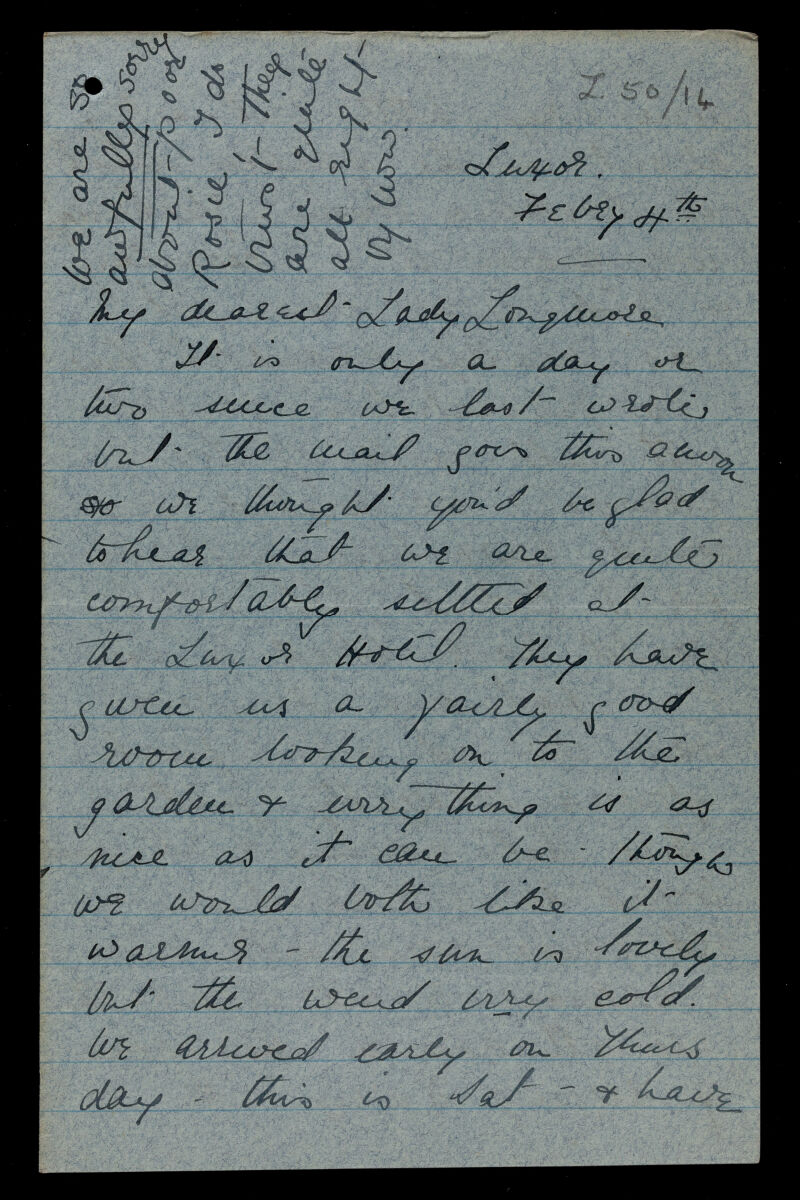 We are so
awfully sorry
about poor
Rosie I do
trust they
are quite
all right
by now.
L 50/14
Luxor.
Febry 4th
My dearest Lady Longmore
It is only a day or
two since we last wrote
but the mail goes this
so we thought you'd be glad
to hear that we are quite
comfortably settled at
the Luxor Hotel. They have
given us a fairly good
room looking on to the
garden & everything is as
nice as it can be - though
we would both like it
warmer - the sun is lovely
but the wind very cold.
We arrived early on Thurs
day - this is Sat - & have